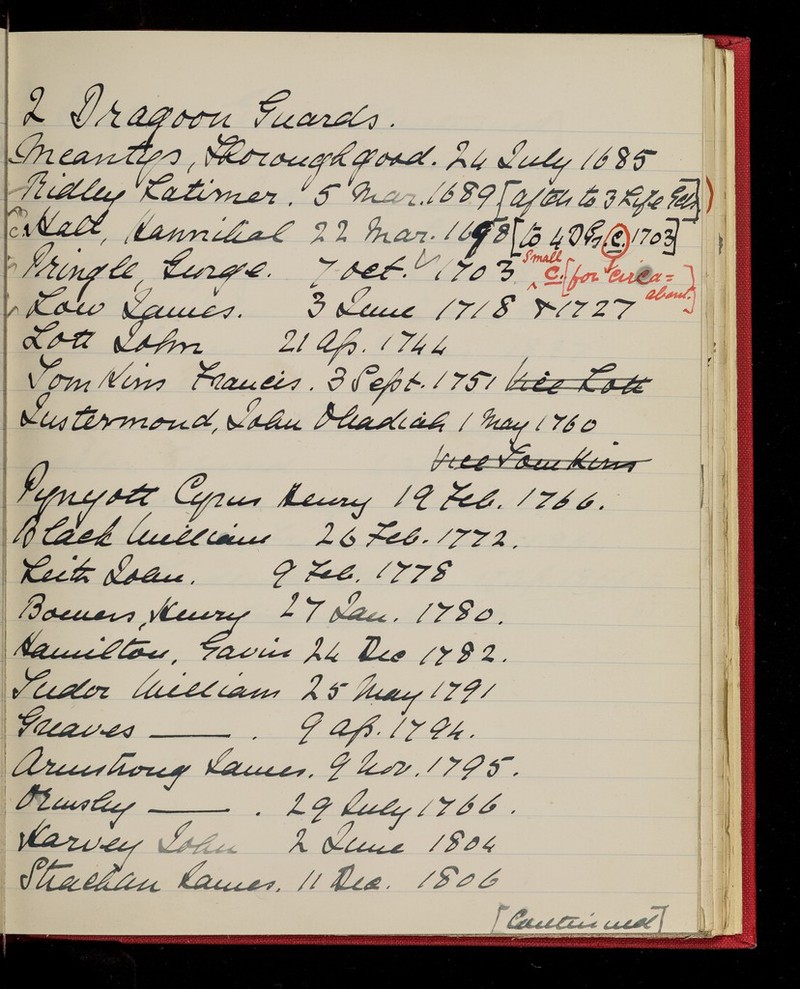 2 Dragoon Guards.
Meantys, Thoroughgood. 24 July 1685
Ridley Latimer. 5 Mar. 1689 [aftds to 3 Life Gds]
Hall, Hannibal 22 Mar. 1698 [to 4 DGs. c. 1703]
Pringle, George. 7 Oct. 1703 small c. [for circa = about.]
Low James. 3 June 1718 & 1727
Lott John 21 Ap. 1744
Tomkins Francis. 3 Sept. 1751 vice Lott
Justermond, John Obadiah 1 May 1760
vice Tomkins
Pynyott Cyrus Henry 19 Feb. 1766.
Black William 26 Feb. 1772.
Leith John. 9 Feb. 1778
Bowers, Henry 27 Jan. 1780.
Hamilton, Gavin 24 Dec 1782.
Tudor William 25 May 1791
Greaves —— . 9 Ap. 1794.
Armstrong James. 9 Nov. 1795.
Ormsby —— . 29 July 1766.
Harvey John 2 June 1804
Strachan James. 11 Dec. 1806
[Continued]